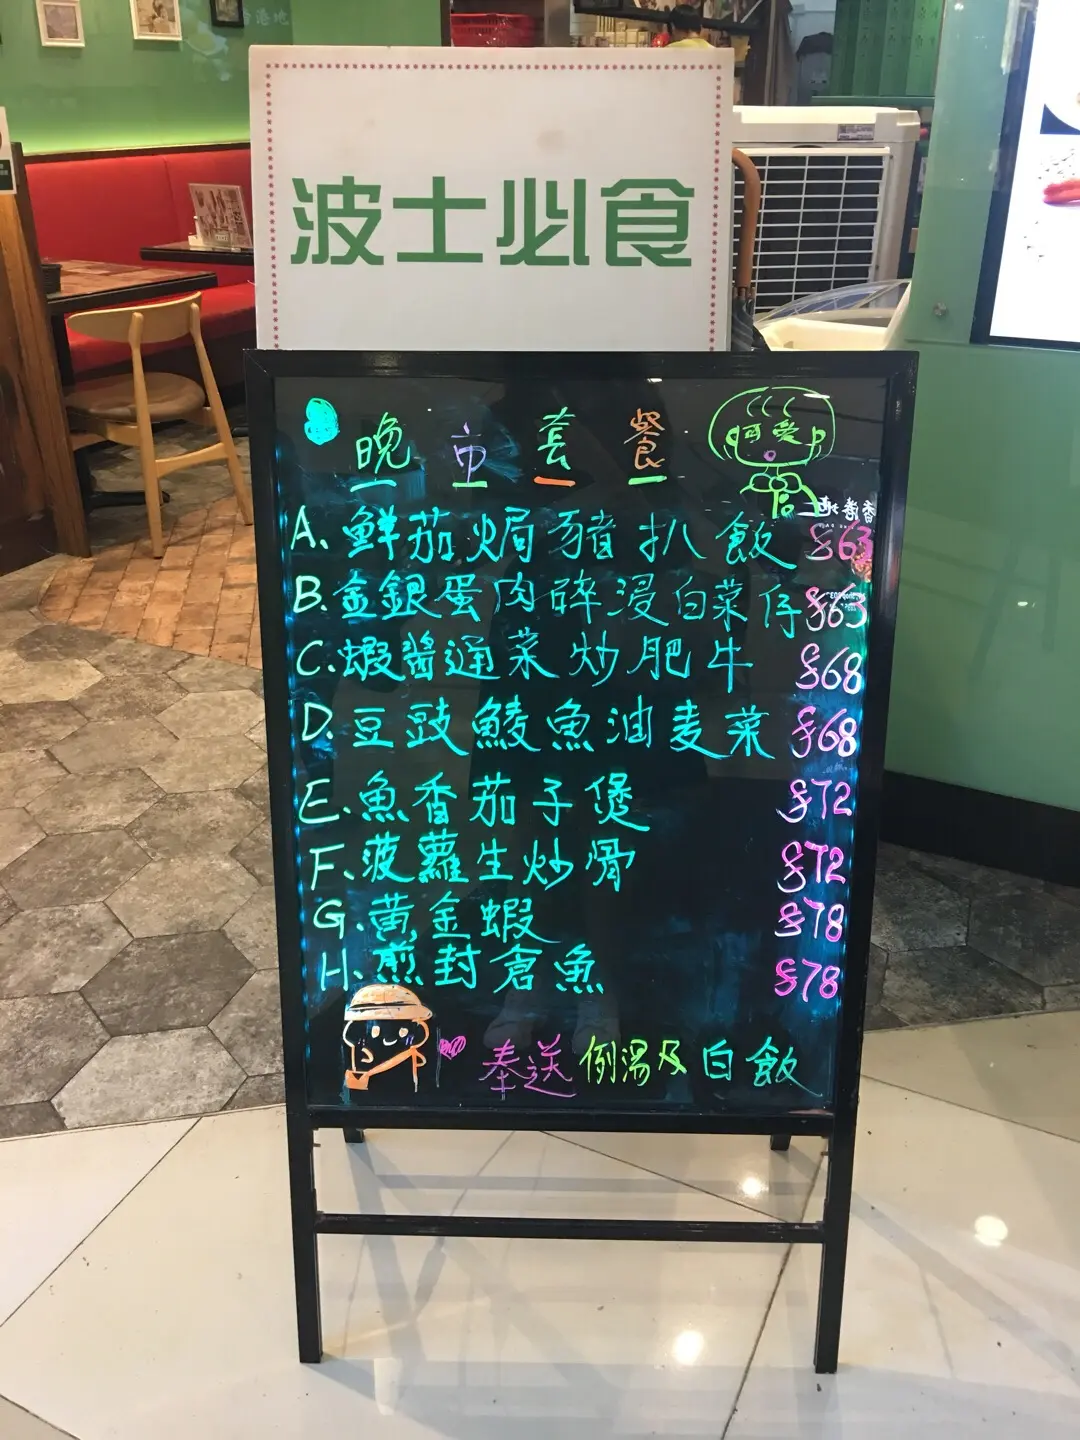 波士必食
晚市套餐
可愛
A.鮮茄焗豬扒飯 $63
B.金銀蛋肉碎浸白菜仔 $63
C.蝦醬通菜炒肥牛 $68
D.豆豉鯪魚油麦菜 $68
E.魚香茄子煲 $72
F.菠蘿生炒骨 $72
G.黃金蝦 $78
H.煎封倉魚 $78
奉送例湯及白飯